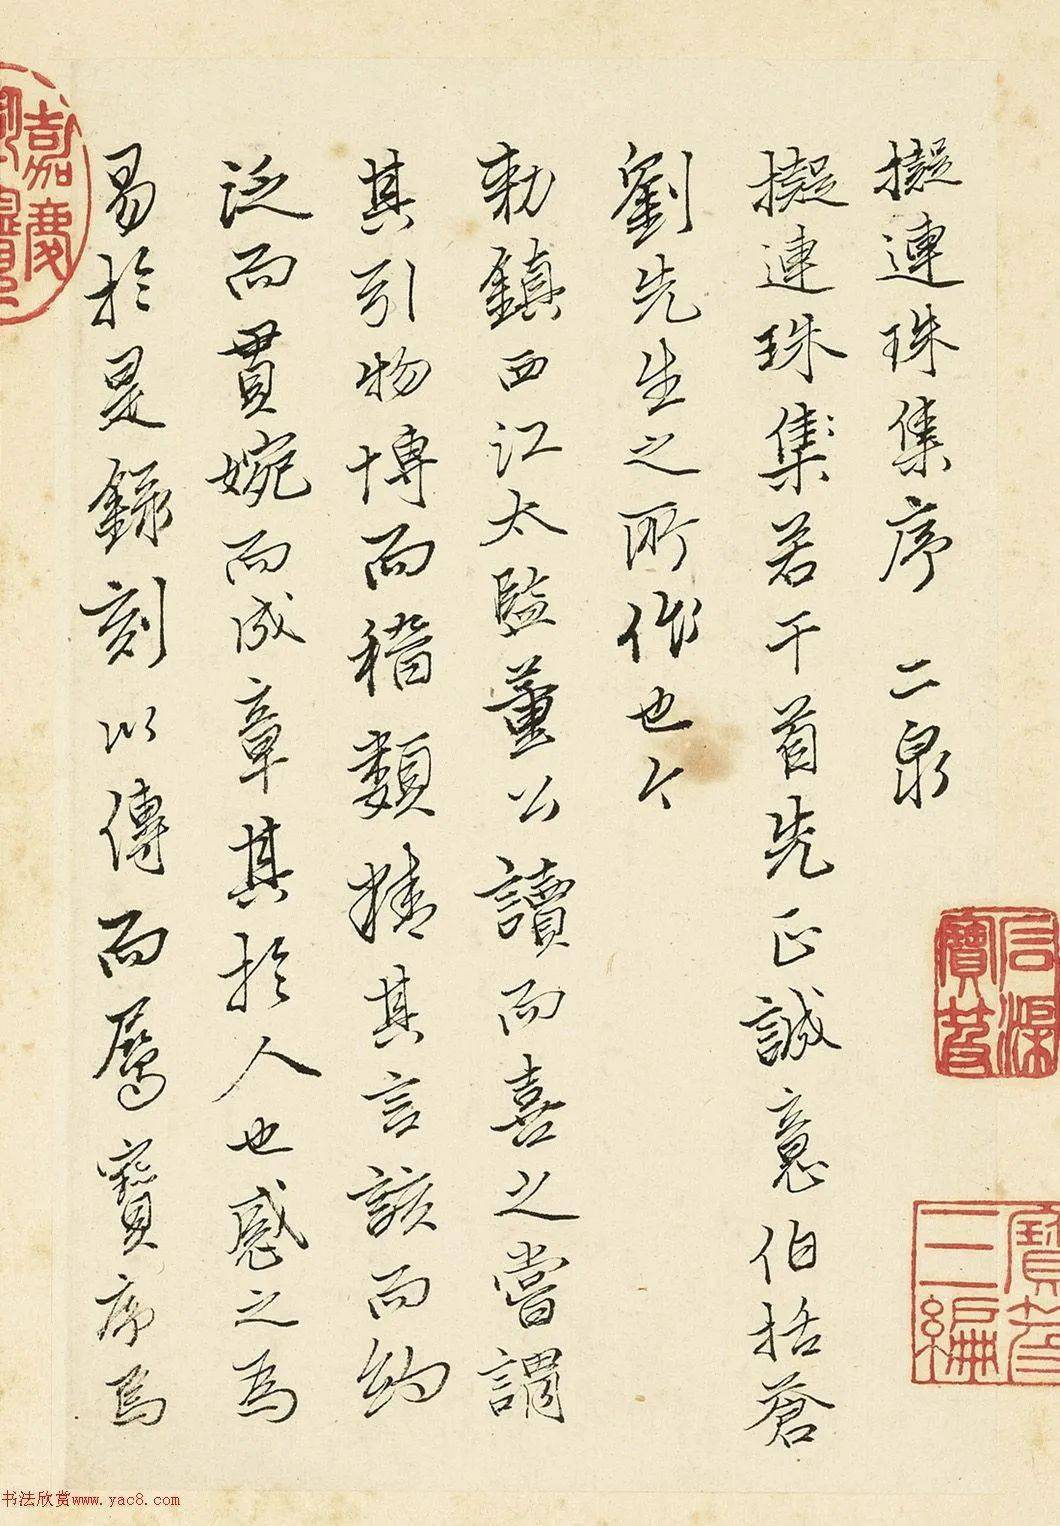 擬連珠集序 二泉
擬連珠集若干首先正誠意伯括蒼
劉先生之所作也今
勅鎮西江太監董公讀而喜之嘗謂
其引物博而稽類精其言該而約
泛而貫婉而成章其於人也感之為
易於是錄刻以傳而屬寶序焉
嘉慶
寶笈
三編
书法欣赏www.yac8.com